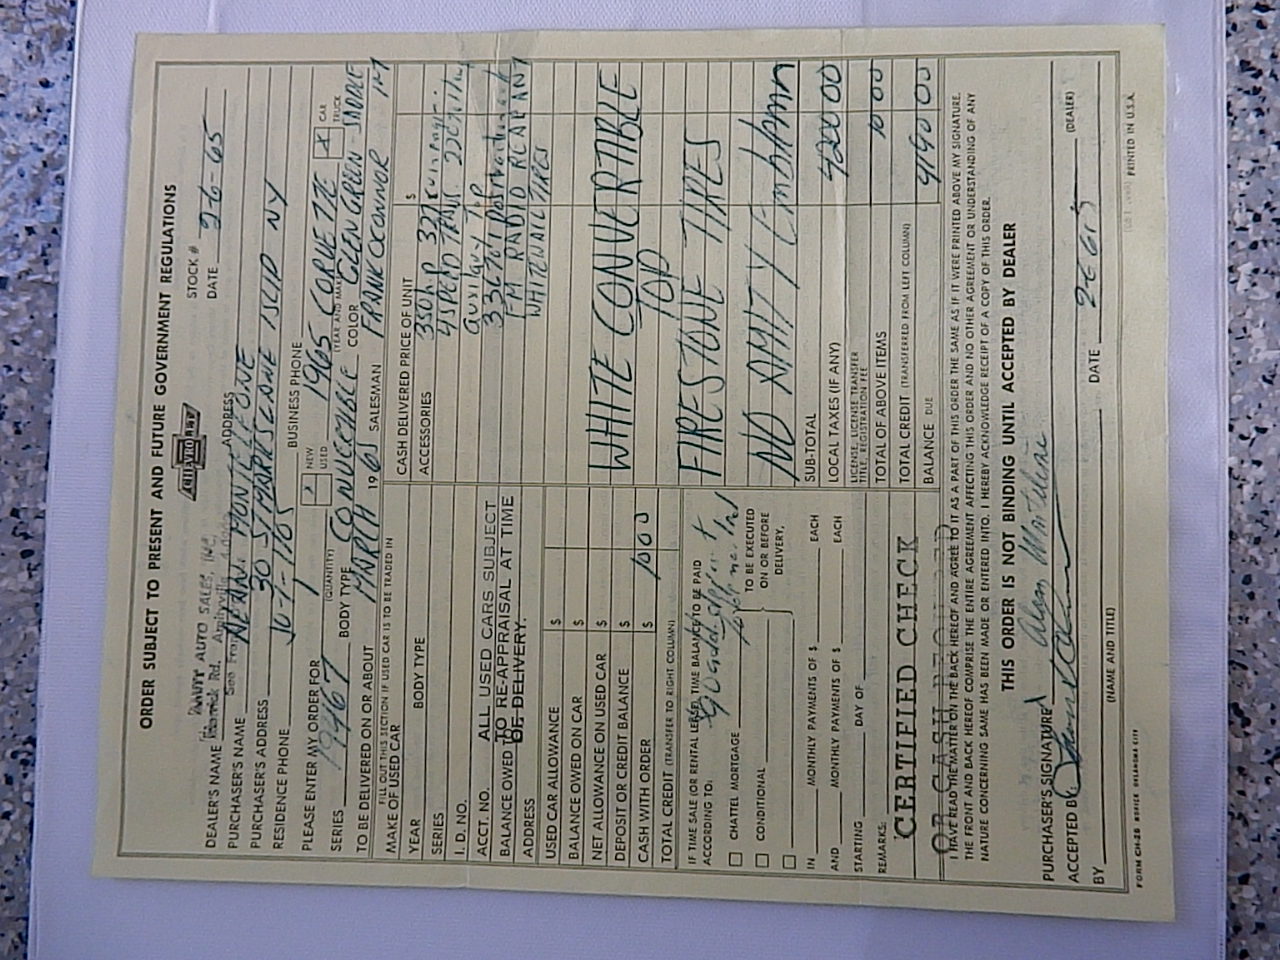 ORDER SUBJECT TO PRESENT AND FUTURE GOVERNMENT REGULATIONS
CHEVROLET
STOCK #
DEALER'S NAME AUTO SALES, INC. ADDRESS DATE 2-6-65
Rd. Amityville
PURCHASER'S NAME MONTELEONE
PURCHASER'S ADDRESS 30 ST MARKS LANE ISLIP NY
RESIDENCE PHONE JU-1-1105 BUSINESS PHONE
PLEASE ENTER MY ORDER FOR 1 NEW USED 1965 CORVETTE X CAR TRUCK
(QUANTITY) (YEAR AND MAKE)
SERIES 19467 BODY TYPE CONVERTIBLE COLOR GLEN GREEN - SADDLE
TO BE DELIVERED ON OR ABOUT MARCH 1965 SALESMAN FRANK OCONNOR
FILL OUT THIS SECTION IF USED CAR IS TO BE TRADED IN
MAKE OF USED CAR
YEAR BODY TYPE
SERIES
I.D. NO.
ACCT. NO. ALL USED CARS SUBJECT
BALANCE OWED TO RE-APPRAISAL AT TIME
ADDRESS OF DELIVERY.
USED CAR ALLOWANCE $
BALANCE OWED ON CAR $
NET ALLOWANCE ON USED CAR $
DEPOSIT OR CREDIT BALANCE $
CASH WITH ORDER $ 100
TOTAL CREDIT (TRANSFER TO RIGHT COLUMN)
IF TIME SALE (OR RENTAL LEASE) TIME BALANCE TO BE PAID
ACCORDING TO:
CHATTEL MORTGAGE
CONDITIONAL
TO BE EXECUTED
ON OR BEFORE
DELIVERY,
IN MONTHLY PAYMENTS OF $ EACH
AND MONTHLY PAYMENTS OF $ EACH
STARTING DAY OF
REMARKS:
CERTIFIED CHECK
OR CASH REQUIRED
CASH DELIVERED PRICE OF UNIT $
ACCESSORIES 350HP 327
4 SPEED TRANS.
TOP
FM RADIO REAR ANT
WHITEWALL TIRES
WHITE CONVERTABLE
TOP
FIRESTONE TIRES
NO AMITY Emblem
SUB-TOTAL
LOCAL TAXES (IF ANY) 4200 00
LICENSE, LICENSE TRANSFER
TITLE, REGISTRATION FEE
TOTAL OF ABOVE ITEMS
TOTAL CREDIT (TRANSFERRED FROM LEFT COLUMN)
BALANCE DUE 4190 00
I HAVE READ THE MATTER ON THE BACK HEREOF AND AGREE TO IT AS A PART OF THIS ORDER THE SAME AS IF IT WERE PRINTED ABOVE MY SIGNATURE.
THE FRONT AND BACK HEREOF COMPRISE THE ENTIRE AGREEMENT AFFECTING THIS ORDER AND NO OTHER AGREEMENT OR UNDERSTANDING OF ANY
NATURE CONCERNING SAME HAS BEEN MADE OR ENTERED INTO. I HEREBY ACKNOWLEDGE RECEIPT OF A COPY OF THIS ORDER.
THIS ORDER IS NOT BINDING UNTIL ACCEPTED BY DEALER
PURCHASER'S SIGNATURE
ACCEPTED BY DATE 2-6-65
BY (NAME AND TITLE) (DEALER)
PRINTED IN U.S.A.